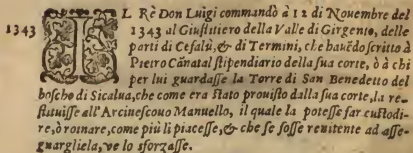 1343
IL Rè Don Luigi commandò à 12 di Nouembre del
1343 al Giustitiero della Valle di Girgento, delle
parti di Cefalù, & di Termini, che hauēdo scritto à
Pietro Cānatal stipendiario della sua corte, ò à chi
per lui guardasse la Torre di San Benedetto del
boscho di Sicalua, che come era stato prouisto dalla sua corte, la re-
stituisse all'Arciuescouo Manuello, il quale la potesse far custodi-
re, ò roinare, come più li piacesse, & che se fosse renitente ad asse-
guargliela, ve lo sforzasse.